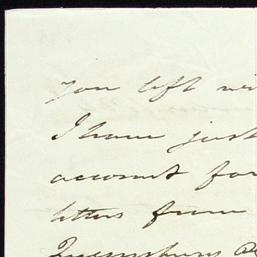 you left wi
I have just
account for
letters from
Queensbury a